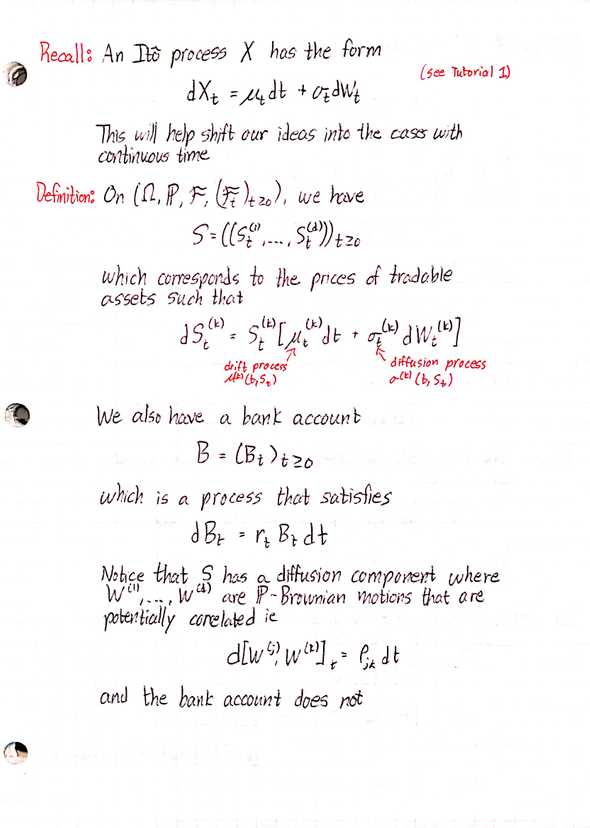 Recall: An Itô process X has the form
(see Tutorial 1)
dX_t = μ_t dt + σ_t dW_t
This will help shift our ideas into the cases with
continuous time
Definition: On (Ω, ℙ, F, (F_t)_{t≥0}), we have
S = ((S_t^{(1)}, ..., S_t^{(d)}))_{t≥0}
which corresponds to the prices of tradable
assets such that
dS_t^{(k)} = S_t^{(k)} [μ_t^{(k)} dt + σ_t^{(k)} dW_t^{(k)}]
drift process
μ^{(k)}(t, S_t)
diffusion process
σ^{(k)}(t, S_t)
We also have a bank account
B = (B_t)_{t≥0}
which is a process that satisfies
dB_t = r_t B_t dt
Notice that S has a diffusion component where
W^{(1)}, ..., W^{(d)} are ℙ-Brownian motions that are
potentially corelated ie
d[W^{(j)}, W^{(k)}]_t = ρ_{jk} dt
and the bank account does not